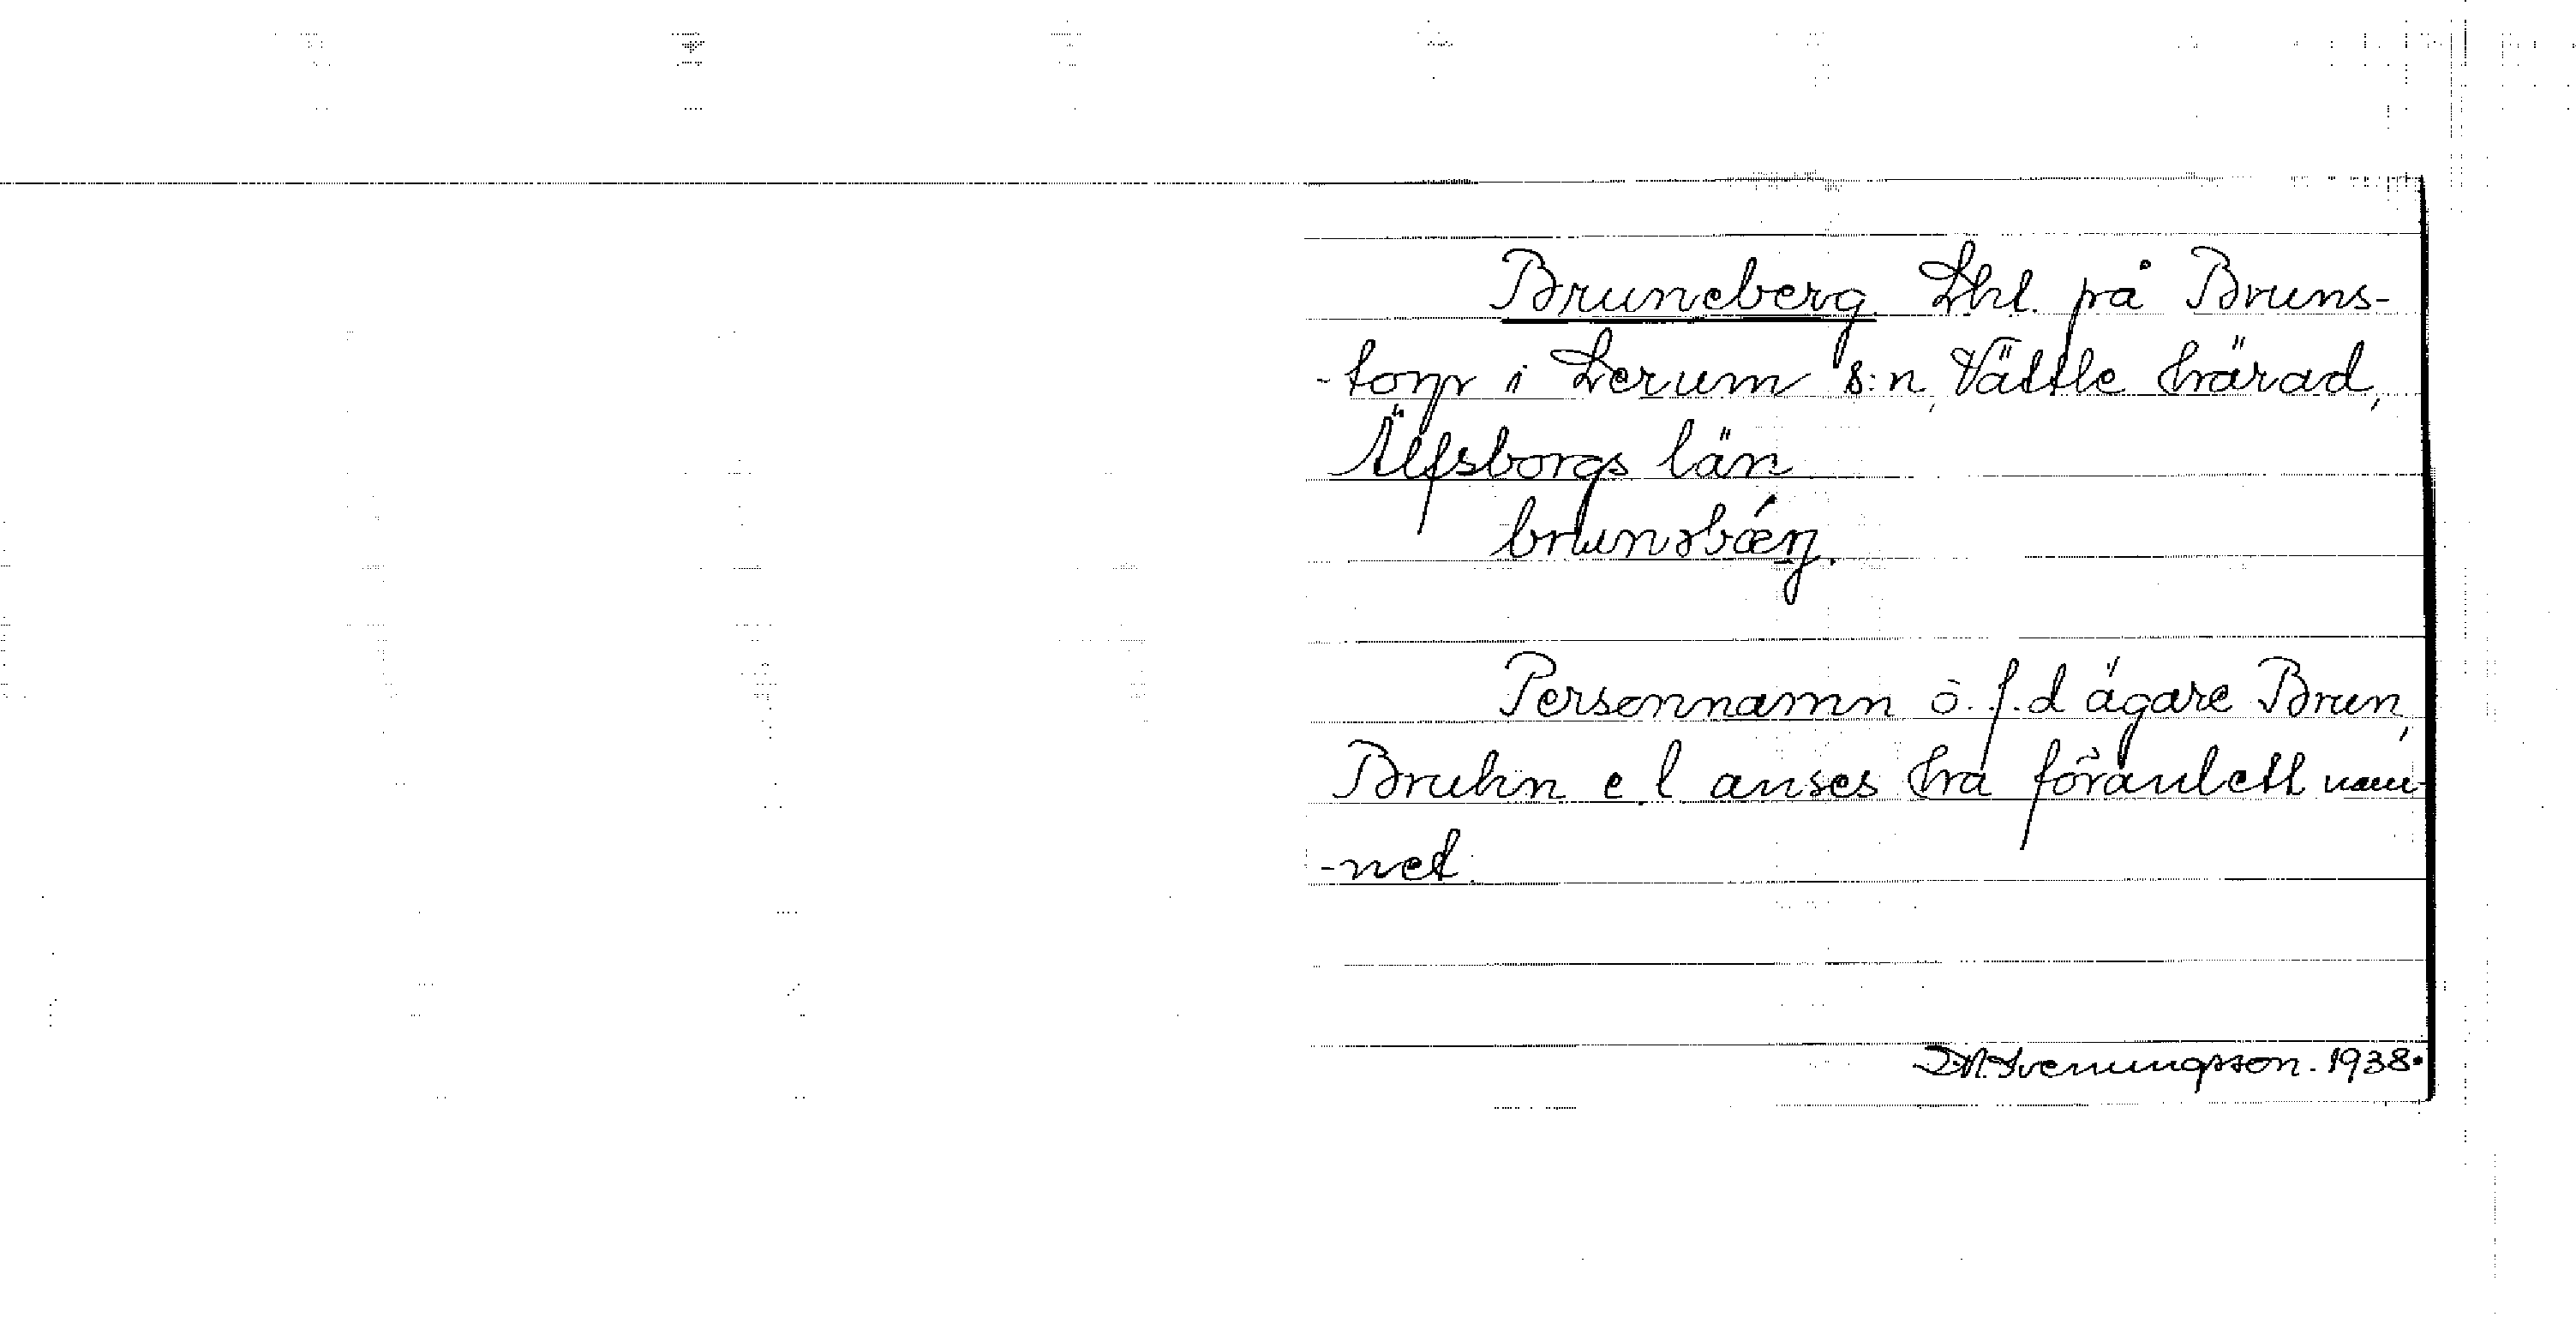 Bruneberg Lht. på Bruns-
-torp i Lerum s:n, Vättle härad,
Älfsborgs län
brunəbǽrj.
Personnamn ö. f.d ägare Brun,
Bruhn e.l anses ha föranlett nam-
-net.
Svenningsson. 1938.